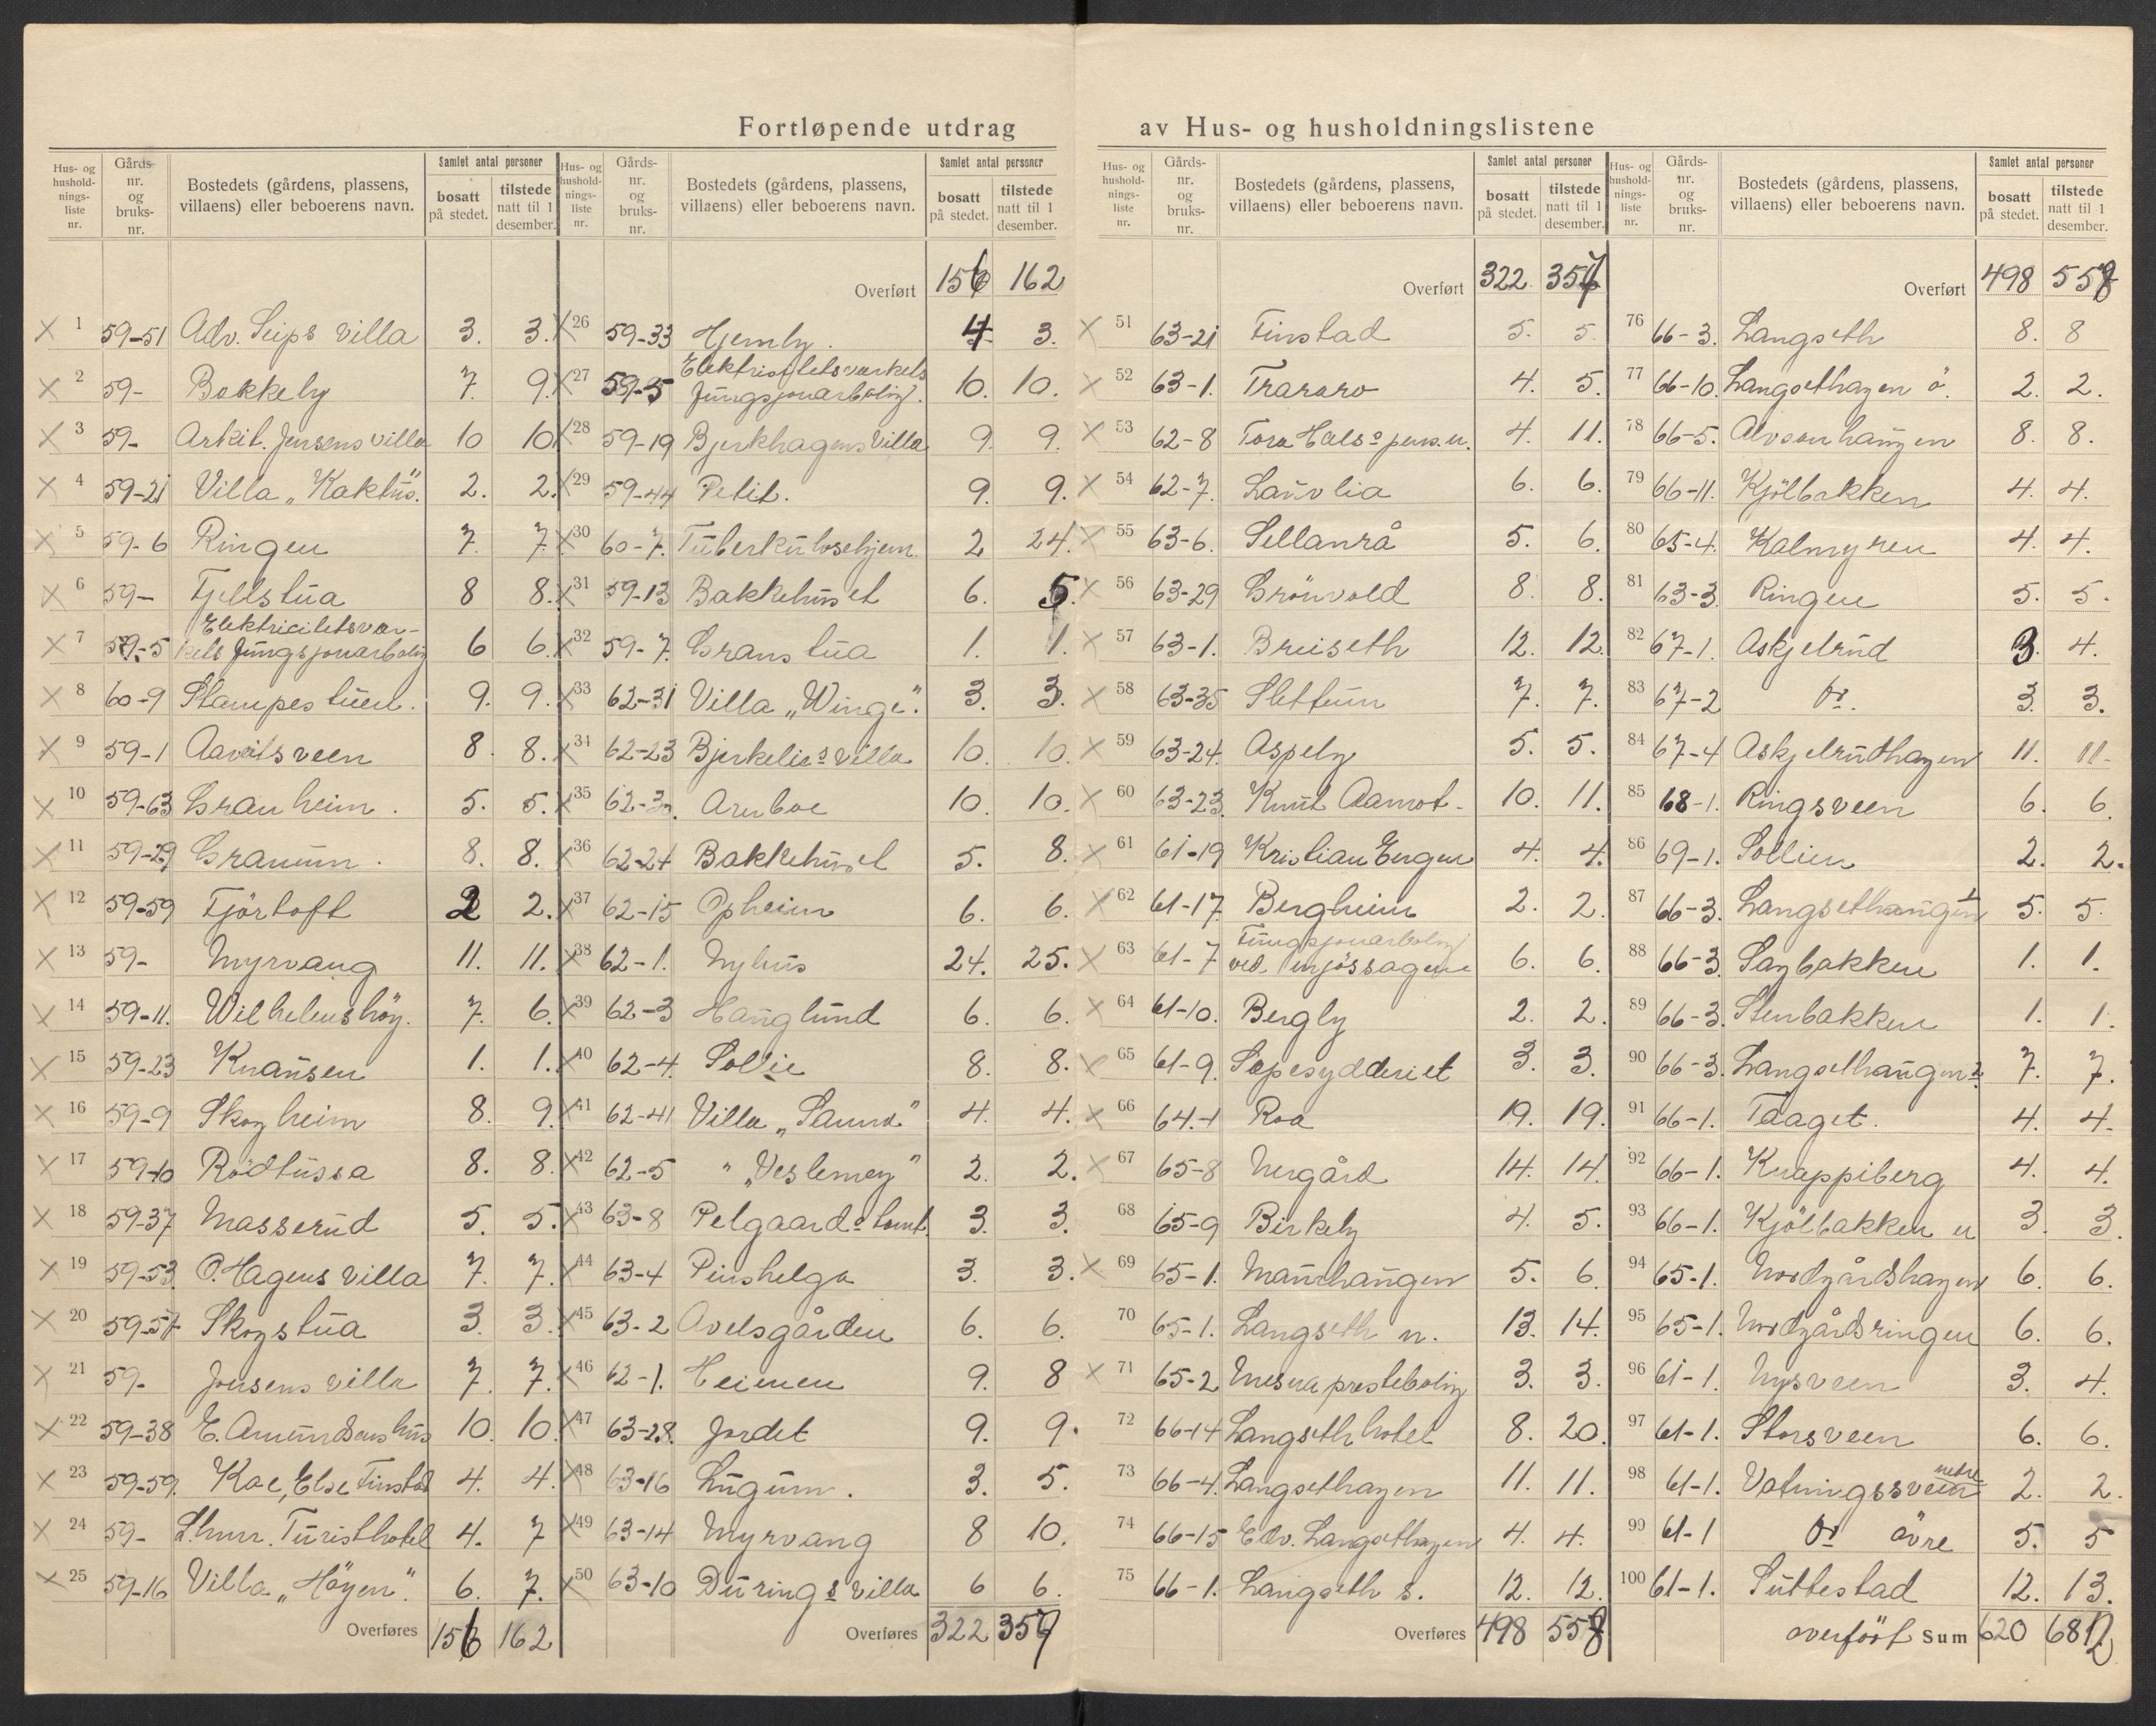 Fortløpende utdrag av Hus- og husholdningslistene
Hus- og hushold-nings-liste nr. | Gårds-nr. og bruks-nr. | Bostedets (gårdens, plassens, villaens) eller beboerens navn. | Samlet antal personer | bosatt på stedet. | tilstede natt til 1 desember.
X 1 59-51 Adv. Seips villa 3. 3.
X 2 59- Bakkeby 7. 9.
X 3 59- Arkit. Jensens villa 10 10
X 4 59-21 Villa „Kaktus". 2. 2.
X 5 59-6 Ringen 7. 7.
X 6 59- Fjellstua 8 8.
X 7 59-5 Elektricitetsvær-
kets funksjonærbolig 6 6.
X 8 60-9 Stampestuen. 9. 9.
X 9 59-1 Aavatsveen 8. 8.
X 10 59-63 Granheim. 5. 5.
X 11 59-29 Granum. 8. 8.
X 12 59-59 Fjörtoft 2 2.
X 13 59- Myrvang 11. 11.
X 14 59-11. Wilhelmshöy. 7. 6.
X 15 59-23 Knausen 1. 1.
X 16 59-9 Skogheim 8. 9.
X 17 59-10 Rödtussa 8. 8.
X 18 59-37 Masserud 5. 5.
X 19 59-53. O. Hagens villa 7. 7.
X 20 59-57 Skogstua 3. 3.
X 21 59- Jensens villa 7. 7.
X 22 59-38 E. Amundsens hus 10. 10.
X 23 59-59. Kae, Else Finstad 4. 4.
X 24 59- L.hmr. Turisthotel 4. 7
X 25 59-16 Villa „Höyen". 6. 7.
Overføres 156 162
Hus- og hushold-nings-liste nr. | Gårds-nr. og bruks-nr. | Bostedets (gårdens, plassens, villaens) eller beboerens navn. | Samlet antal personer | bosatt på stedet. | tilstede natt til 1 desember.
Overført 156 162
X 26 59-33 Hjemly. 4 3.
X 27 59-5 Elektrisitetsværkets
funksjonærbolig. 10. 10.
X 28 59-19 Bjerkhagens villa 9. 9.
X 29 59-44 Petit. 9. 9.
X 30 60-7. Tuberkulosehjem. 2 24.
X 31 59-13 Bakkehuset 6. 5.
X 32 59-7. Granstua 1. 1.
X 33 62-31 Villa „Winge". 3. 3.
X 34 62-23 Bjerkelis villa 10. 10.
X 35 62-30. Arnboe 10. 10.
X 36 62-24 Bakkehuset 5. 8.
X 37 62-15 Opheim 6. 6.
X 38 62-1. Nyhus 24. 25.
X 39 62-3 Hauglund 6. 6.
X 40 62-4. Solvie 8. 8.
X 41 62-41 Villa „Saund" 4. 4.
X 42 62-5 " „Veslemøy" 2. 2.
X 43 63-8 Pelgaards tomt. 3. 3.
X 44 63-4 Pinshelga 3. 3.
X 45 63-2 Avelsgården 6. 6.
X 46 62-1. Heimen 9. 8
X 47 63-28. Jordet 9. 9.
X 48 63-16 Lugum. 3. 5.
X 49 63-14 Myrvang 8 10.
X 50 63-10 Durings villa 6 6.
Overføres 322 357
Hus- og hushold-nings-liste nr. | Gårds-nr. og bruks-nr. | Bostedets (gårdens, plassens, villaens) eller beboerens navn. | Samlet antal personer | bosatt på stedet. | tilstede natt til 1 desember.
Overført 322. 357
X 51 63-21 Finstad 5. 5.
X 52 63-1. Traroro 4. 5.
X 53 62-8 Tora Hals's pens.n. 4. 11.
X 54 62-7. Lauvlia 6. 6.
X 55 63-6. Sellanrå 5. 6.
X 56 63-29 Grönvold 8. 8.
X 57 63-1. Breiseth 12. 12.
X 58 63-35 Slettum 7. 7.
X 59 63-24. Aspely 5. 5.
X 60 63-23. Knut Aamot. 10. 11.
X 61 61-19 Kristian Engen 4. 4.
X 62 61-17. Bergheim 2. 2.
X 63 61-7 Fungsjonærbolig
ved Mjøssagene 6. 6.
X 64 61-10. Bergly 2. 2.
X 65 61-9. Sepesydderiet 3. 3.
X 66 64-1 Roa 19. 19.
X 67 65-8 Nergård 14. 14.
68 65-9 Birkely 4. 5.
X 69 65-1. Maurhaugen 5. 6.
70 65-1. Langseth n. 13. 14.
X 71 65-2. Mesna prestebolig 3. 3.
72 66-14 Langseth hotel 8. 20.
73 66-4. Langsethagen 11. 11.
74 66-15 Edv. Langsethagen 4. 4.
75 66-1. Langseth s. 12. 12.
Overføres 498 558
Hus- og hushold-nings-liste nr. | Gårds-nr. og bruks-nr. | Bostedets (gårdens, plassens, villaens) eller beboerens navn. | Samlet antal personer | bosatt på stedet. | tilstede natt til 1 desember.
Overført 498 558
76 66-3. Langseth 8. 8
77 66-10. Langsethagen ö. 2. 2.
78 66-5. Alvsonhaugen 8. 8.
79 66-11. Kjölbakken 4. 4.
80 65-4. Kalmyren 4. 4.
81 63-3. Ringen 5. 5.
82 67-1. Askjelrud 3. 4.
83 67-2 Do. 3. 3.
84 67-4 Askjelrudhagen 11. 11.
85 68-1. Ringsveen 6. 6.
86 69-1. Sollien 2. 2.
87 66-3. Langsethaugen 1 5. 5.
88 66-3. Sagbakken 1. 1.
89 66-3. Stenbakken 1. 1.
90 66-3. Langsethaugen 2. 7. 7.
91 66-1. Taaget. 4. 4.
92 66-1. Knappiberg 4. 4.
93 66-1. Kjölbakken n 3. 3.
94 65-1. Nordgårdshagen 6. 6.
95 65-1. Nordgårdsringen 6. 6.
96 61-1. Nysveen 3. 4.
97 61-1. Storsveen 6. 6.
98 61-1. Vatningssveen nedre 2. 2.
99 61-1 Do övre 5. 5
100 61-1. Suttestad 12. 13.
overfört Sum 620 682